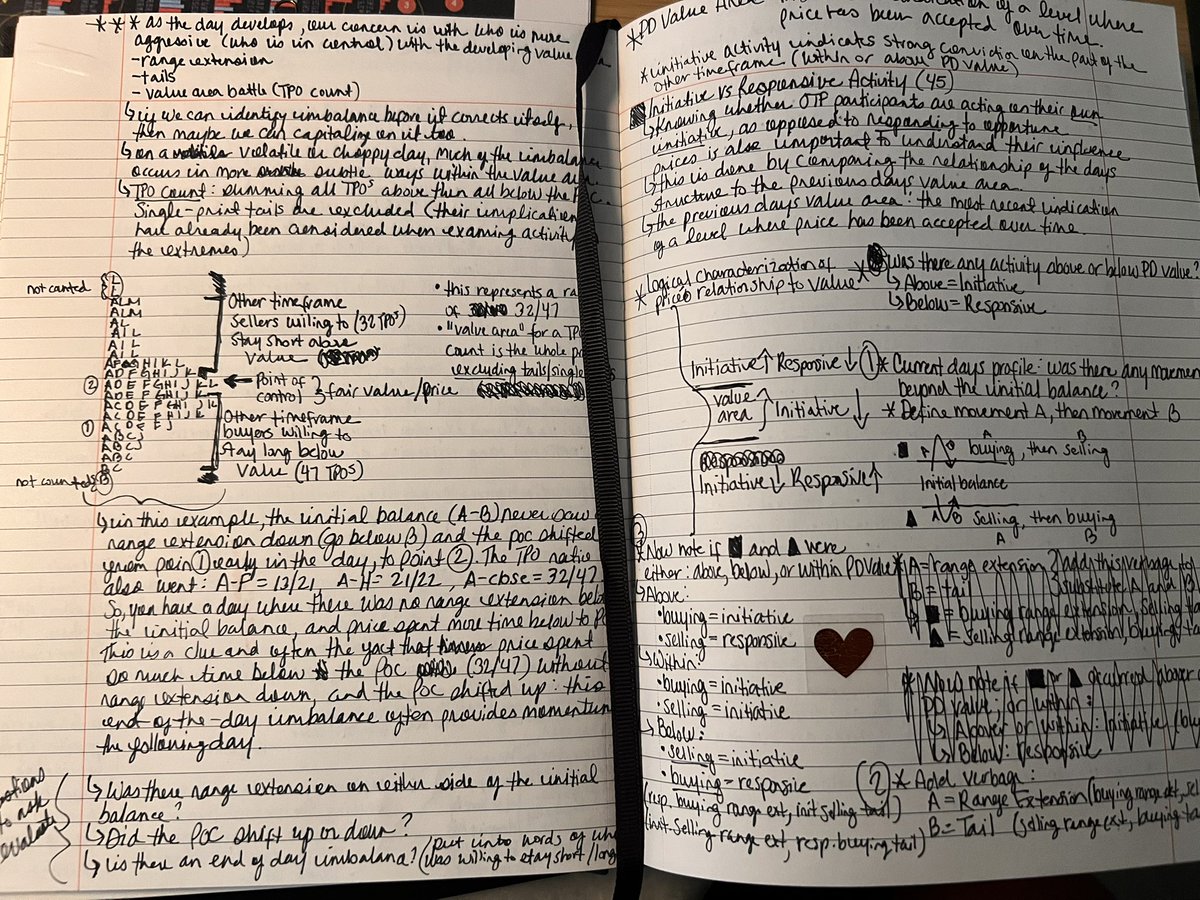 *** as the day develops, our concern is with who is more
aggressive (who is in control) with the developing value
- range extension
- tails
- value area battle (TPO count)
↳ if we can identify imbalance before it corrects itself,
then maybe we can capitalize on it too.
↳ on a volatile or choppy day, much of the imbalance
occurs in more subtle ways within the value area.
↳ TPO count: summing all TPOs above then all below the
Single-print tails are excluded (their implication
have already been considered when examing activity
the extremes)
not counted
L
L
ALM
ALM
AL
AIL
AIL
AIL
AFGHIKL
ADFGHIJKL
② ADEFGHIJKL
ADEFGHIJKL
ACDEFGHIJK
ACDEFHIJK
① ACDEFJ
ABCJ
ABCJ
ABC
BC
not counted B
Other timeframe
sellers willing to (32 TPOs)
stay short above
value
← Point of control } fair value/price
Other timeframe
buyers willing to
stay long below
value (47 TPOs)
• this represents a
of 32/47
• "value area" for a TPO
count is the whole
excluding tails/single
↳ in this example, the initial balance (A-B) never saw
range extension down (go below B) and the poc shifted
from poin ① early in the day, to point ②. The TPO ratio
also went: A-F = 13/21, A-H = 21/22, A-close = 32/47
So, you have a day where there was no range extension below
the initial balance, and price spent more time below
This is a clue and often the fact that price spent
so much time below the POC (32/47) without
range extension down, and the POC shifted up: this
end-of-the-day imbalance often provides momentum
the following day.
to ask
evaluate
↳ Was there range extension on either side of the initial
balance?
↳ Did the POC shift up or down?
↳ is there an end of day imbalance? (put into words of who
was willing to stay short/long
* PD Value Area
of a level where
price has been accepted over time.
* initiative activity indicates strong conviction on the part of the
other timeframe (within or above PD value)
Initiative vs Responsive Activity (45)
↳ Knowing whether OTF participants are acting on their own
initiative, as opposed to responding to opportune
prices is also important to understand their influence
↳ this is done by comparing the relationship of the days
structure to the previous days value area.
↳ the previous days value area: the most recent indication
of a level where price has been accepted over time.
* Logical characterization of
* price relationship to value
* Was there any activity above or below PD value?
↳ Above = Initiative
↳ Below = Responsive
Initiative ↑ Responsive ↓
value
area } Initiative ↓
Initiative ↓ Responsive ↑
① * Current days profile: was there any movement
beyond the initial balance?
* Define movement A, then movement B
A B
buying, then selling
A B
Initial balance
A B
selling, then buying
A B
③
* Now note if ■ and ▲ were
either: above, below, or within PD Value
↳ Above:
• buying = initiative
• selling = responsive
↳ Within:
• buying = initiative
• selling = initiative
↳ Below:
• selling = initiative
• buying = responsive
(resp. buying range ext, init selling tail)
(init-selling range ext, resp. buying tail)
* A = range extension } add this verbage to
B = tail } substitute A and B
■ = buying range extension, selling
▲ = selling range extension, buying
* Now note if ■ or ▲ occurred above
PD value, or within:
↳ Above or within: Initiative
↳ Below: responsive
② * Add verbage:
A = Range Extension (buying range ext, sel
B = Tail (selling range ext, buying ta